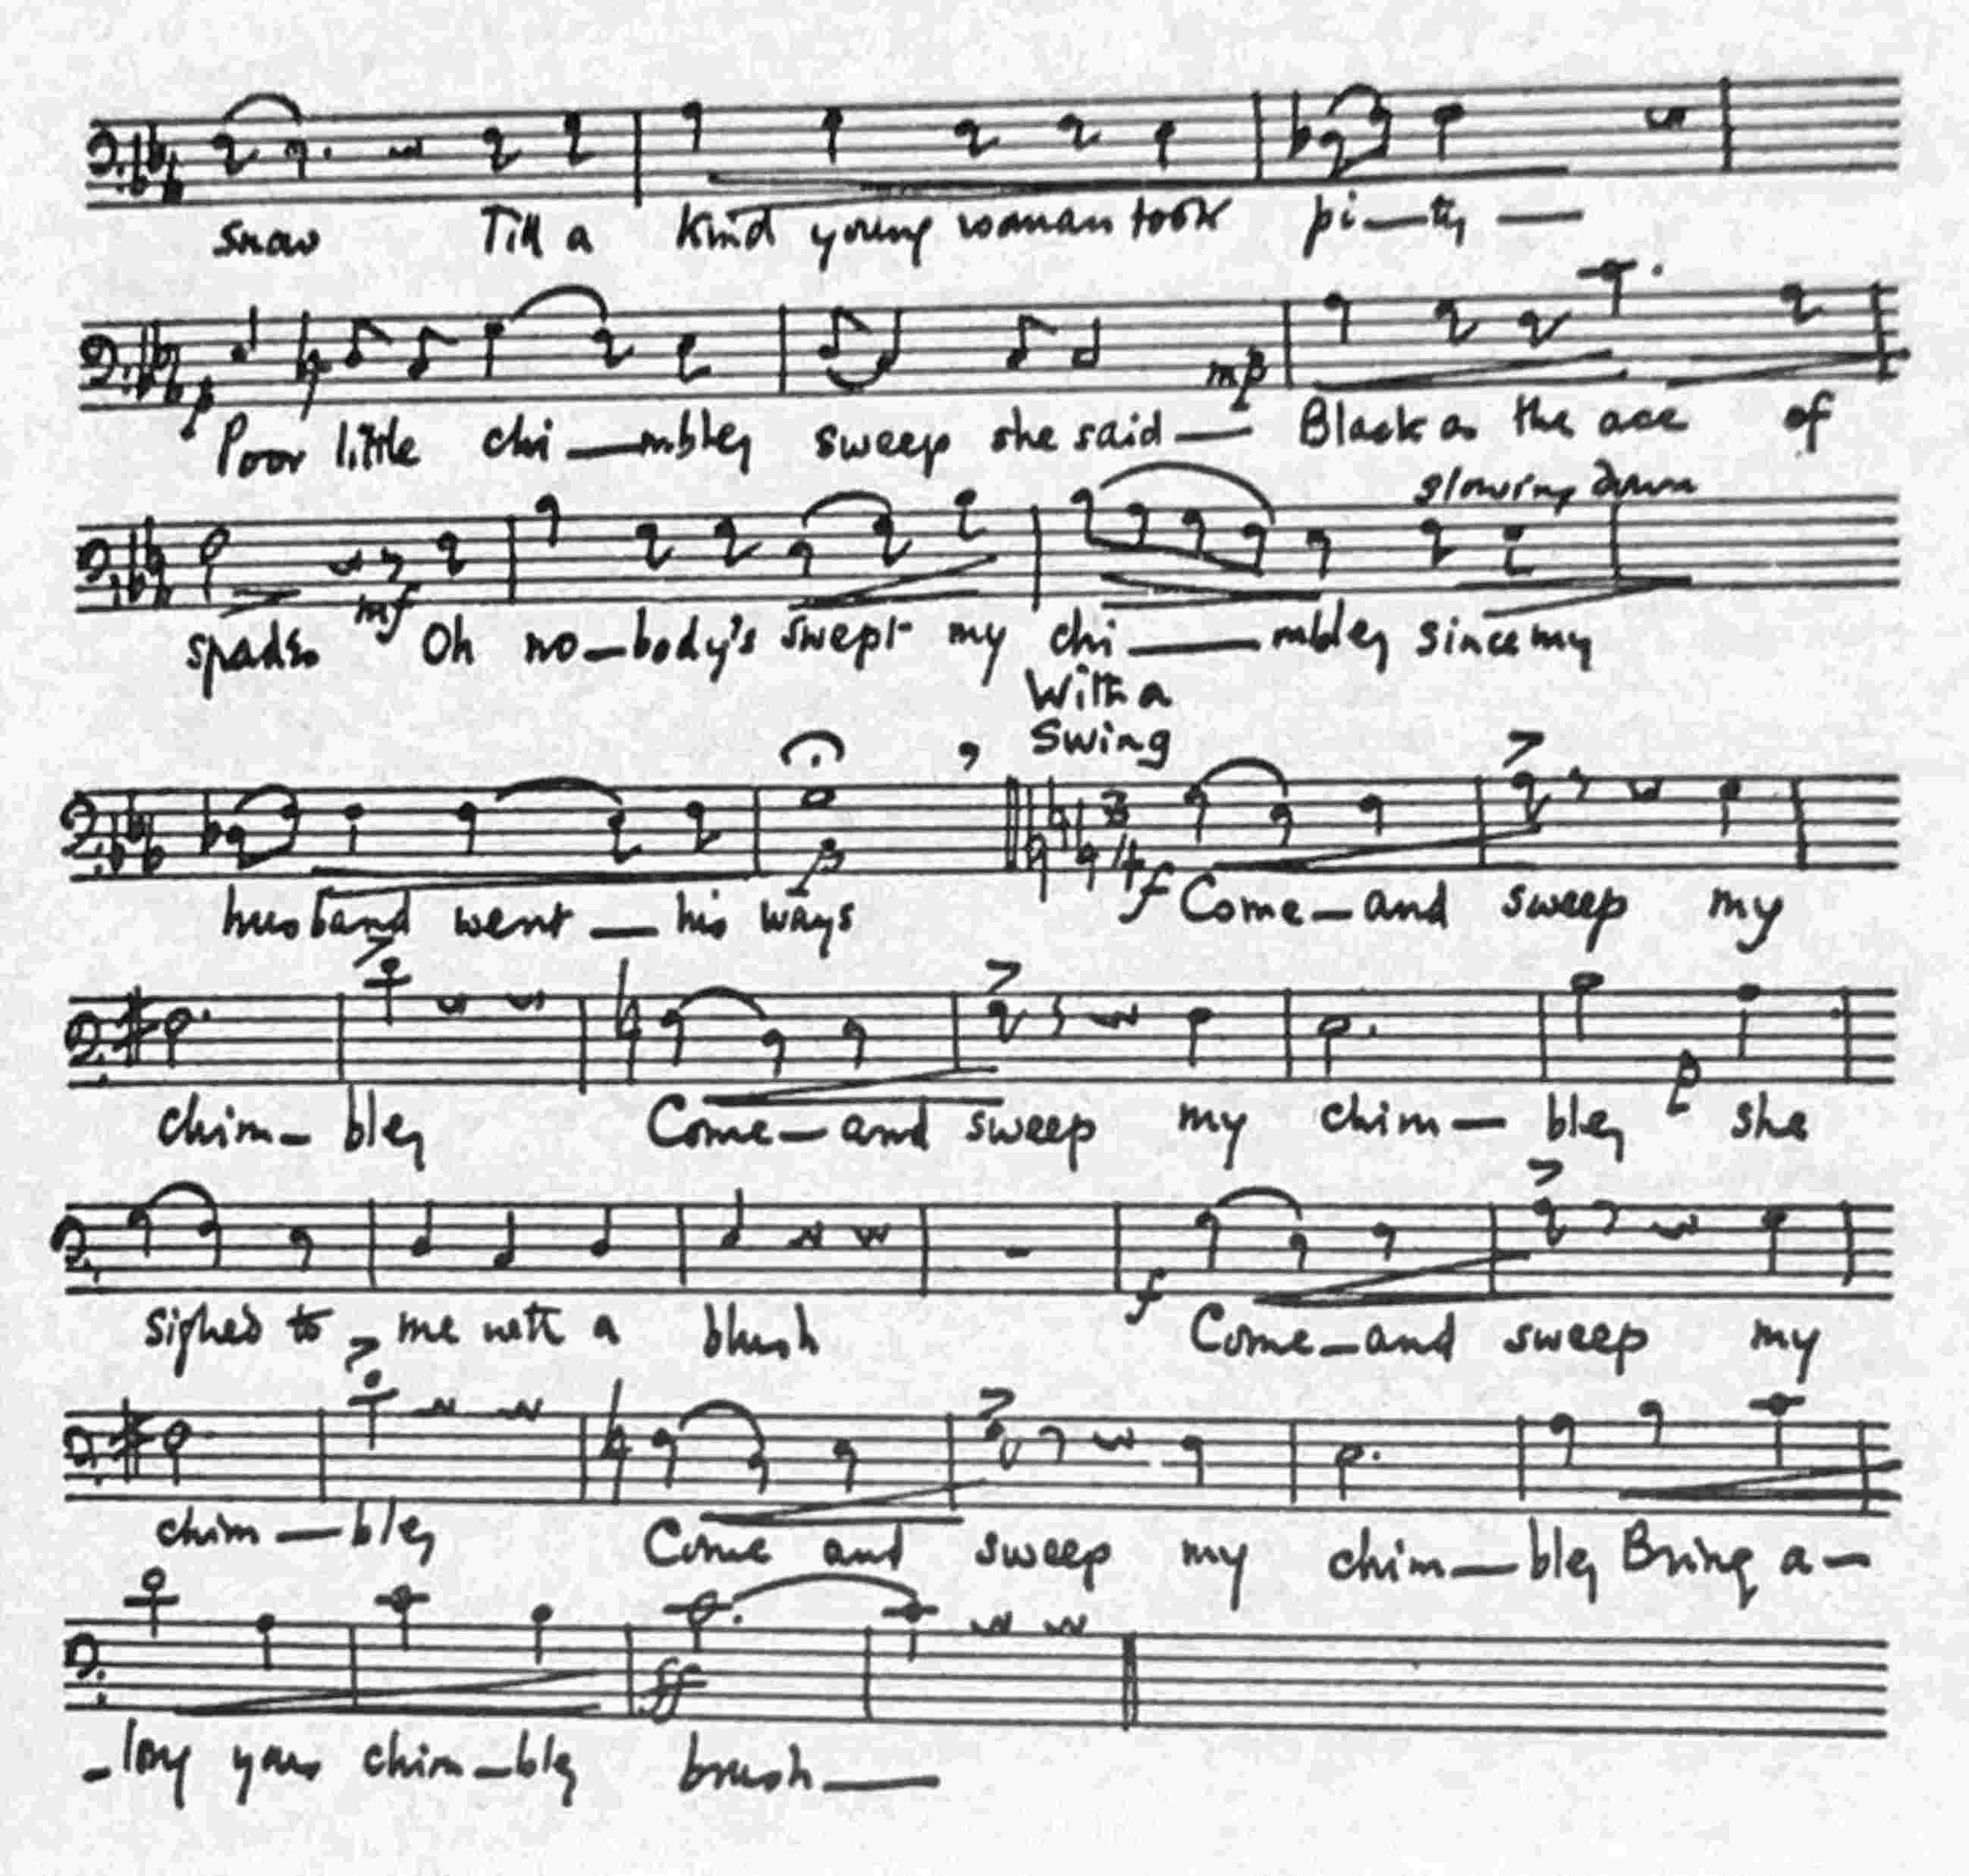 snow Till a kind young woman took pi—ty —
p
Poor little chi—mbley sweep she said — mp Black as the ace of
slowing down
spades mf Oh no—body's swept my chi——mbley since my
With a
Swing
3
4
p f
husband went — his ways Come—and sweep my
chim—bley Come—and sweep my chim—bley p she
f
sighed to me with a blush Come—and sweep my
chim—bley Come and sweep my chim—bley Bring a—
ff
-long your chim—bley brush——